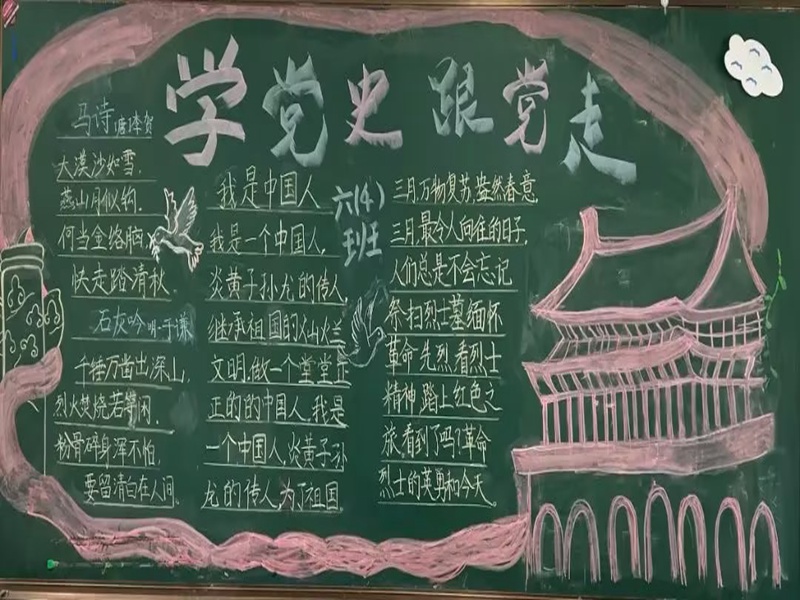 学党史 跟党走
马诗 唐·李贺
大漠沙如雪，
燕山月似钩。
何当金络脑，
快走踏清秋。
石灰吟 明·于谦
千锤万凿出深山，
烈火焚烧若等闲。
粉骨碎身浑不怕，
要留清白在人间。
我是中国人
我是一个中国人，
炎黄子孙龙的传人，
继承祖国的火山火兰
文明，做一个堂堂正
正的的中国人，我是
一个中国人，炎黄子孙
龙的传人，为了祖国
六(4)
班
三月，万物复苏，盎然春意，
三月，最令人向往的日子，
人们总是不会忘记
祭扫烈士墓缅怀
革命先烈看烈士
精神踏上红色之
旅，看到了吗？革命
烈士的英勇和今天。